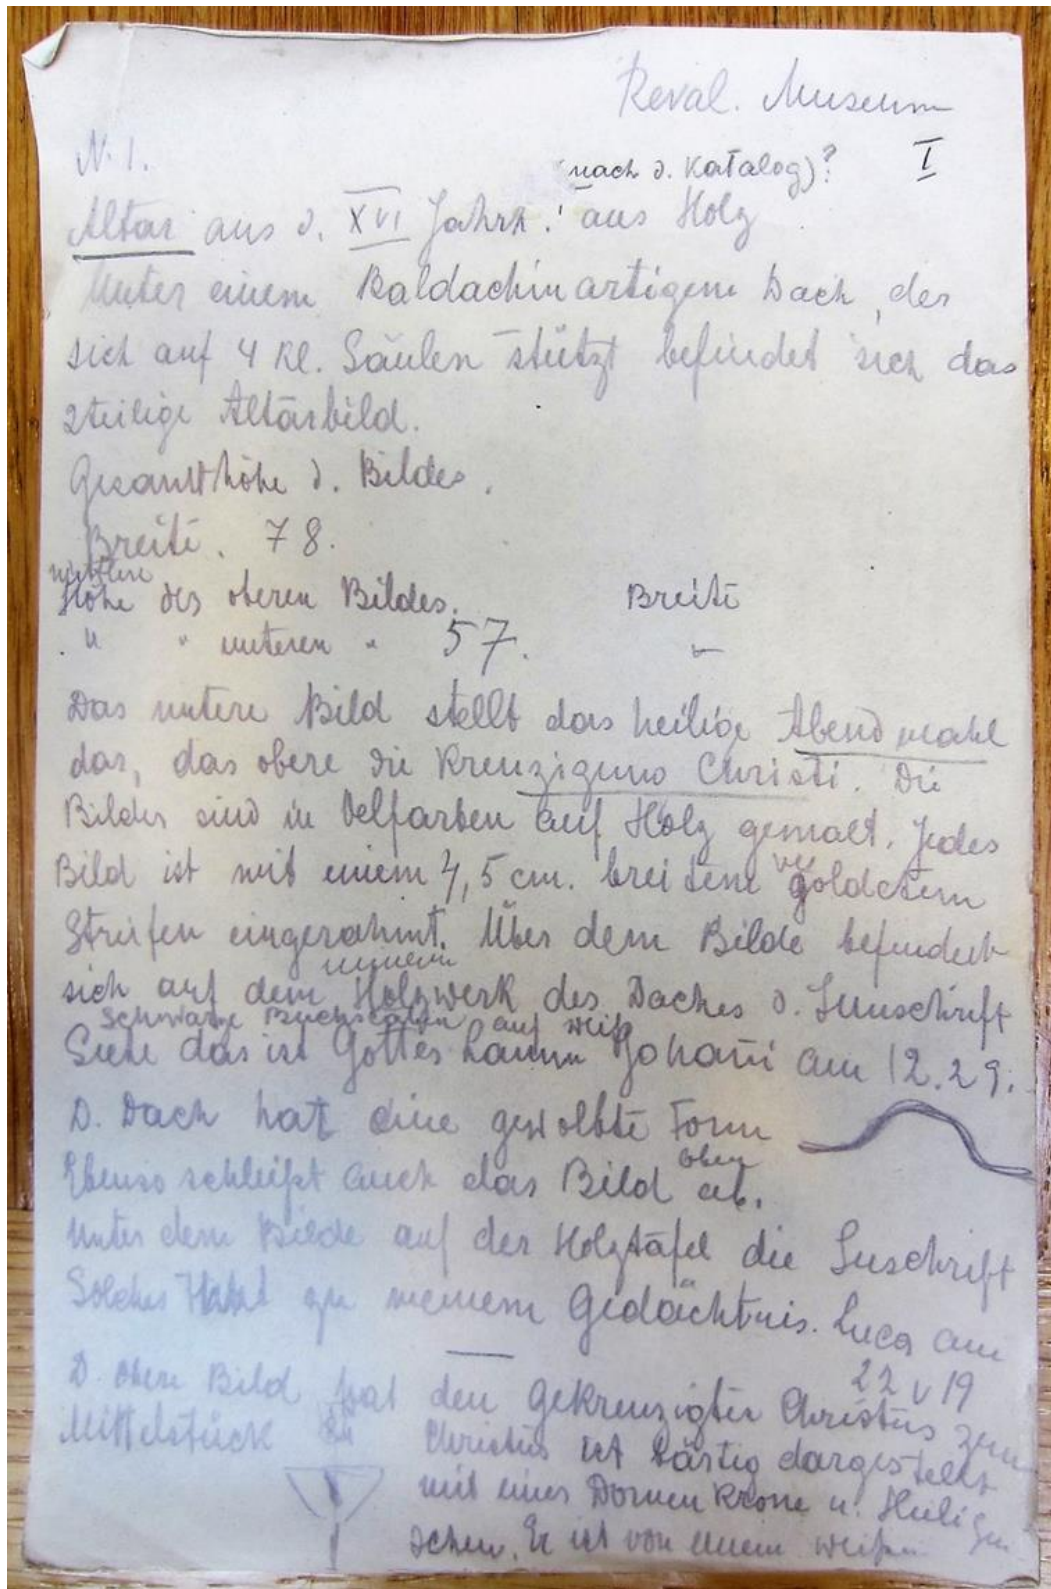 Reval. Museum
I
N. 1.
(nach d. Katalog)?
Altar aus d. XVI Jahrh.! aus Holz
Unter einem Baldachinartigem Dach, der
sich auf 4 kl. Säulen stützt befindet sich das
2teilige Altarbild.
Gesamthöhe d. Bildes.
Breite. 78.
mittlere
Höhe des oberen Bildes. Breite
" " unteren " 57. "
Das untere Bild stellt das heilige Abendmahl
dar, das obere die Kreuzigung Christi. Die
Bilder sind in Oelfarben auf Holz gemalt. Jedes
Bild ist mit einem 4,5 cm. breitem vergoldetem
Streifen eingerahmt. Über dem Bilde befindet
sich auf dem Holzwerk des Daches d. Innschrift
schwarze Buchstaben auf weiß
Siehe das ist Gottes Lamm Johañi am 12.29.
D. Dach hat eine gewolbte Form
Ebenso schleißt auch das Bild oben ab.
Unter dem Bilde auf der Holztafel die Inschrift
Solches zu meinem Gedächtnis. Luca am
22 v 19
D. obere Bild hat den gekreuzigten Christus zum
Mittelstück Christus ist bärtig dargestellt
mit einer Dornenkrone u. Heiligen
schein. Er ist von einem weißen